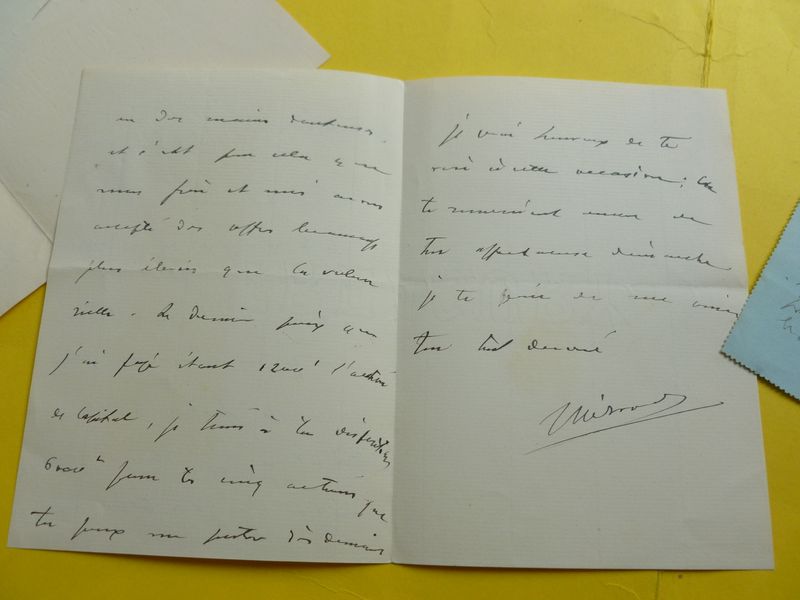 en des mains douteuses.
et c'est pour cela que
mon frère et moi avons
accepté des offres beaucoup
plus élevées que la valeur
réelle. Le dernier prix que
j'ai payé étant 1200f l'action
de capital, je tiens à ta disposition
6000f pour les cinq actions que
tu peux me porter dès demain
je serai heureux de te
voir à cette occasion; En
te remerciant encore de
ton affectueuse démarche
je te prie de me croire
ton tout dévoué